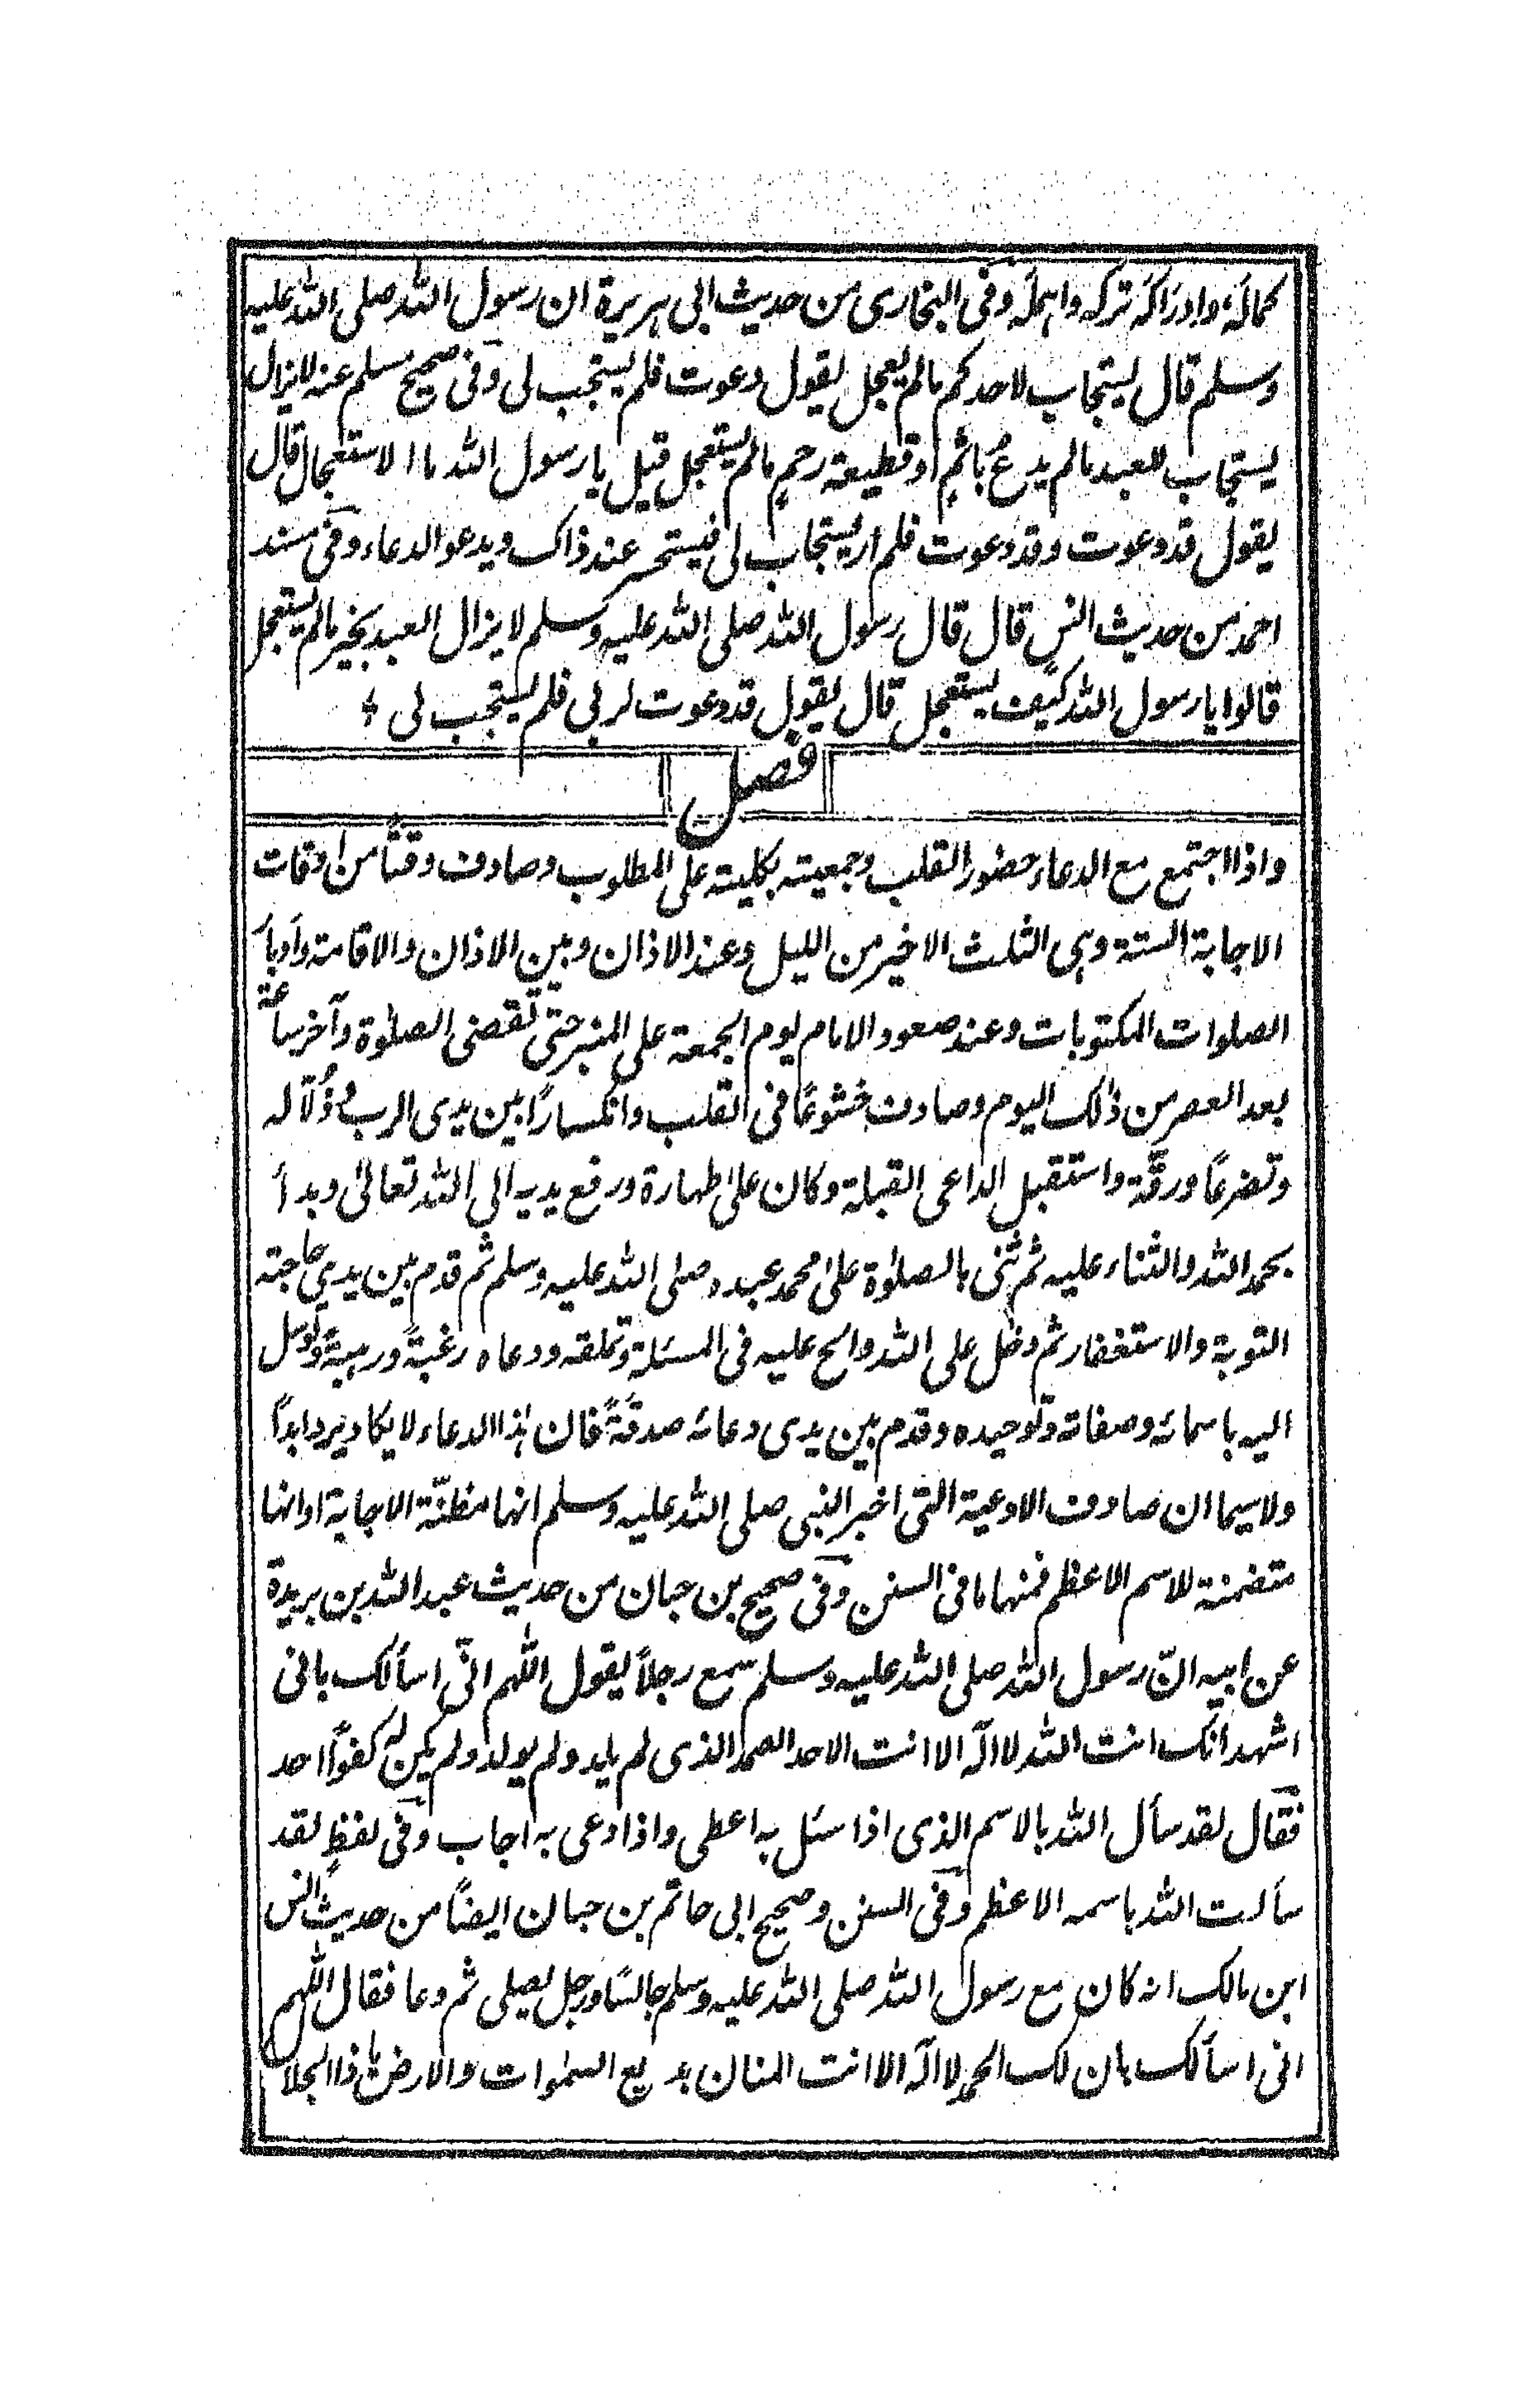 كمالَه وادرَاكَه تركه واہملَه وَفی البخاری من حدیث ابی ہریرة ان رسول اللہ صلی اللہ علیہ
وسلم قال یستجاب لاحدکم مالم یعجل یقول دعوت فلم یستجب لی وَفی صحیح مسلم عنہ لایزال
یستجاب للعبد مالم یدعُ باثمٍ او قطیعة رحمٍ مالم یستعجل قیل یا رسول اللہ ما الاستعجال قال
یقول قد دعوت وقد دعوت فلم ار یستجاب لی فیستحسر عند ذاک ویدعو الدعاء وفی مسند
احمد من حدیث انس قال قال رسول اللہ صلی اللہ علیہ وسلم لا یزال العبد بخیر مالم یستعجل
قالوا یا رسول اللہ کیف یستعجل قال یقول قد دعوت لربی فلم یستجب لی
فصل
واذا اجتمع مع الدعاء حضور القلب وجمعیتہ بکلیتہ علی المطلوب وصادف وقتاً من اوقات
الاجابة الستة وہی الثلث الاخیر من اللیل وعند الاذان وبین الاذان والاقامة وادبار
الصلوات المکتوبات وعند صعود الامام یوم الجمعة علی المنبر حتی تقضی الصلوٰة وآخر ساعة
بعد العصر من ذلک الیوم وصادف خشوعًا فی القلب وانکسارًا بین یدی الرب وذُلّا له
وتضرعًا ورقّة واستقبل الداعی القبلة وکان علیٰ طہارة ورفع یدیہ الی اللہ تعالیٰ وبدأ
بحمد اللہ والثناء علیہ ثم ثنی بالصلوٰة علیٰ محمد عبدہ صلی اللہ علیہ وسلم ثم قدم بین یدی حاجتہ
التوبة والاستغفار ثم دخل علی اللہ والح علیہ فی المسئلة وتملقہ ودعاہ رغبةً ورہبةً وتوسل
الیہ باسمائہ وصفاتہ وتوحیدہ وقدم بین یدی دعائہ صدقةً فان ہٰذا الدعاء لایکاد یرد ابداً
ولاسیما ان صادف الادعیة التی اخبر النبی صلی اللہ علیہ وسلم انہا مظنّة الاجابة او انہا
متضمنة للاسم الاعظم فمنہا ما فی السنن وفی صحیح بن حبان من حدیث عبد اللہ بن بریدة
عن ابیہ انّ رسول اللہ صلی اللہ علیہ وسلم سمع رجلاً یقول اللّٰهم انّی اسألک بانی
اشہد انک انت اللہ لا الٰہ الا انت الاحد الصمد الذی لم یلد ولم یولد ولم یکن لہ کفوًا احد
فقال لقد سأل اللہ بالاسم الذی اذا سئل بہ اعطی واذا دعی بہ اجاب وَفی لفظٍ لقد
سألت اللہ باسمہ الاعظم وَفی السنن وصحیح ابی حاتم بن حبان ایضًا من حدیث انس
ابن مالک انہ کان مع رسول اللہ صلی اللہ علیہ وسلم جالسًا ورجل یصلی ثم دعا فقال اللّٰهم
انی اسألک بان لک الحمد لا الٰہ الا انت المنان بدیع السمٰوات والارض یا ذا الجلال